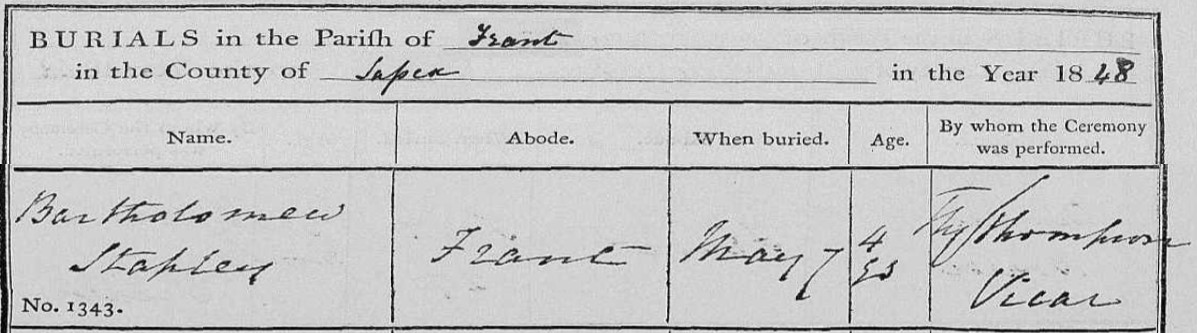 BURIALS in the Pariſh of Frant
in the County of Suſsex in the Year 1848
Name. Abode. When buried. Age. By whom the Ceremony
was performed.
Bartholomew
Stapley Frant May 7 4 Thompson
Vicar
No. 1343.